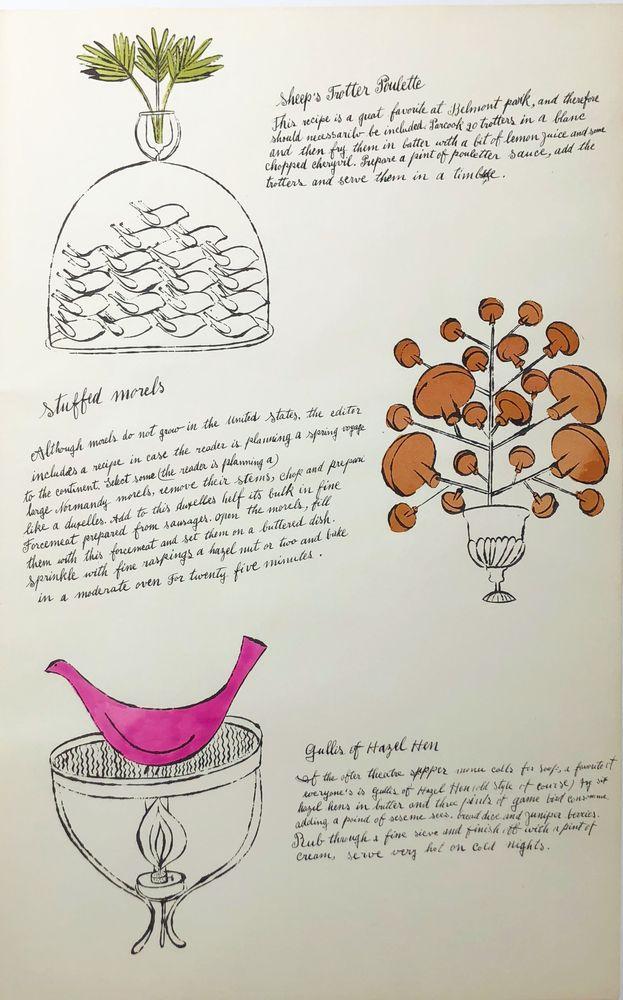 Sheep's Trotter Poulette
This recipe is a great favorite at Belmont park, and therefore
should necessarilo be included. Parcook 20 trotters in a blanc
and then fry them in batter with a bit of lemon juice and some
chopped chervil. Prepare a pint of pouletter sauce, add the
trotters and serve them in a timbale.
Stuffed morels
Although morels do not grow in the United States, the editor
includes a recipe in case the reader is planning a spring voyage
to the continent. Select some (the reader is planning a)
large Normandy morels, remove their stems, chop and prepari
like a duxelles. Add to this duxelles helf its bulk in fine
Forcemeat prepared from sausages. Open the morels, fill
them with this forcemeat and set them on a buttered dish.
Sprinkle with fine raspings a hazel nut or two and bake
in a moderate oven For twenty five minutes.
Gullis of Hazel Hen
If the ofter theatre supper menu calls for soup, a favorite of
everyone's is Gullis of Hazel Hen (old style of course) fry six
hazel hens in butter and three pints of game bird consomme
adding a pound of seseme sees. bread dice and juniper berries.
Rub through a fine sieve and finish off with a pint of
cream, serve very hot on cold nights.